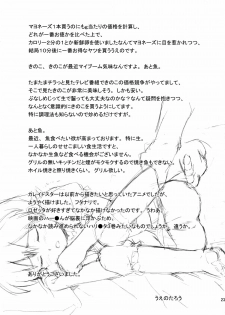 マヨネーズ1本買うのにもg当たりの価格を計算し、
どれが一番お徳かを比べた上で、
カロリー2分の1とか新鮮卵を使いましたなんてマヨネーズに目を惹かれつつ、
結局10分後に一番お得なヤツを買ううえのです。
きのこ、きのこが最近マイブーム気味なんですよ。あと魚。
たまたまチラっと見たテレビ番組できのこの価格競争がやってまして、
これがまた美味しそうなんですよ、しかも安い。
ぶなしめじって生で食べても大丈夫なのかな？なんて疑問を抱きつつ、
とにかく徹底的にきのこを買うようにしてます。
特に調理法も知らないので炒めるだけですが。
あと魚。
最近、魚食べたい欲が高まっております。特に生。
一人暮らしのせせこましい食生活ですと、
なかなか生魚など食べる機会がございません。
グリルの無いキッチンだと煙がモクモクするので焼き魚もできないし、
ホイル焼きと照り焼きくらい、グリル欲しい。
カレイドスターは以前から描きたいと思っていたアニメでして、
ようやく描けました。フタナリで。
ロゼッタが好きすぎてなかなか描けなかったのです。うわあ。
映画のハー●んが脳裏に浮ぶため、
なかなか読み進まれないハリ●タ3巻みたいなものでしょうか。違うか。
ありがとうございました。
うえのたろう
23